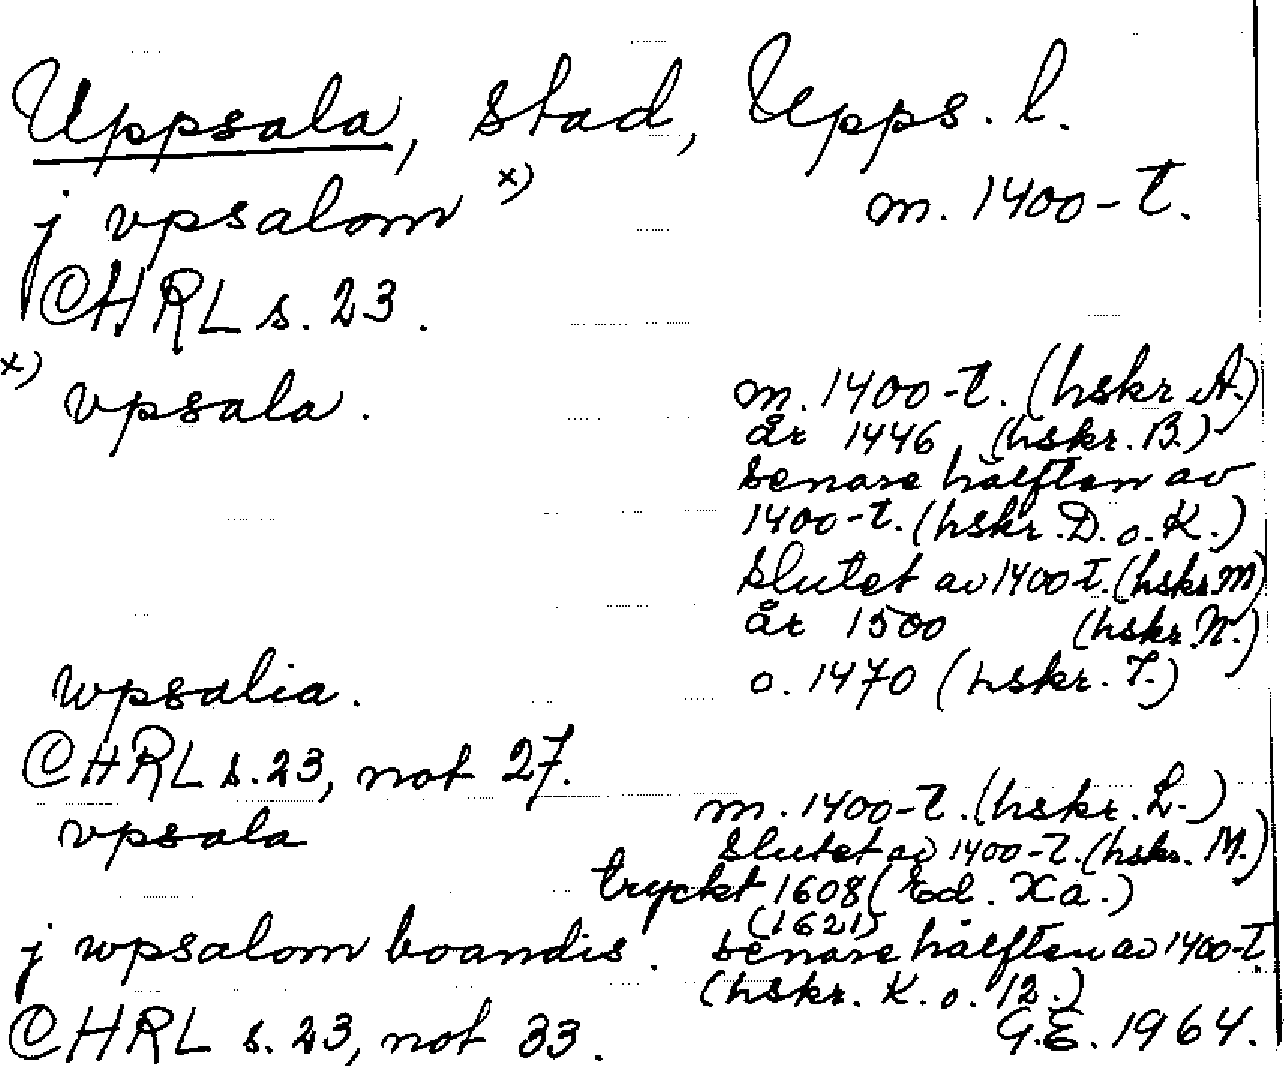 Uppsala, stad, Upps. l.
j vpsalom x) m. 1400-t.
CHRL s. 23.
x) vpsala. m. 1400-t. (hskr A.)
år 1446, (hskr. B.)
senare hälften av
1400-t. (hskr. D. o. K.)
slutet av 1400-t. (hskr. M)
år 1500 (hskr. N.)
wpsalia. o. 1470 (hskr. I.)
CHRL s. 23, not 27.
vpsala m. 1400-t. (hskr. L.)
slutet av 1400-t. (hskr. M.)
tryckt 1608 (Ed. Xa.)
(1621)
j wpsalom boandis. senare hälften av 1400-t.
(hskr. K. o. 12.)
CHRL s. 23, not 33. G.E. 1964.